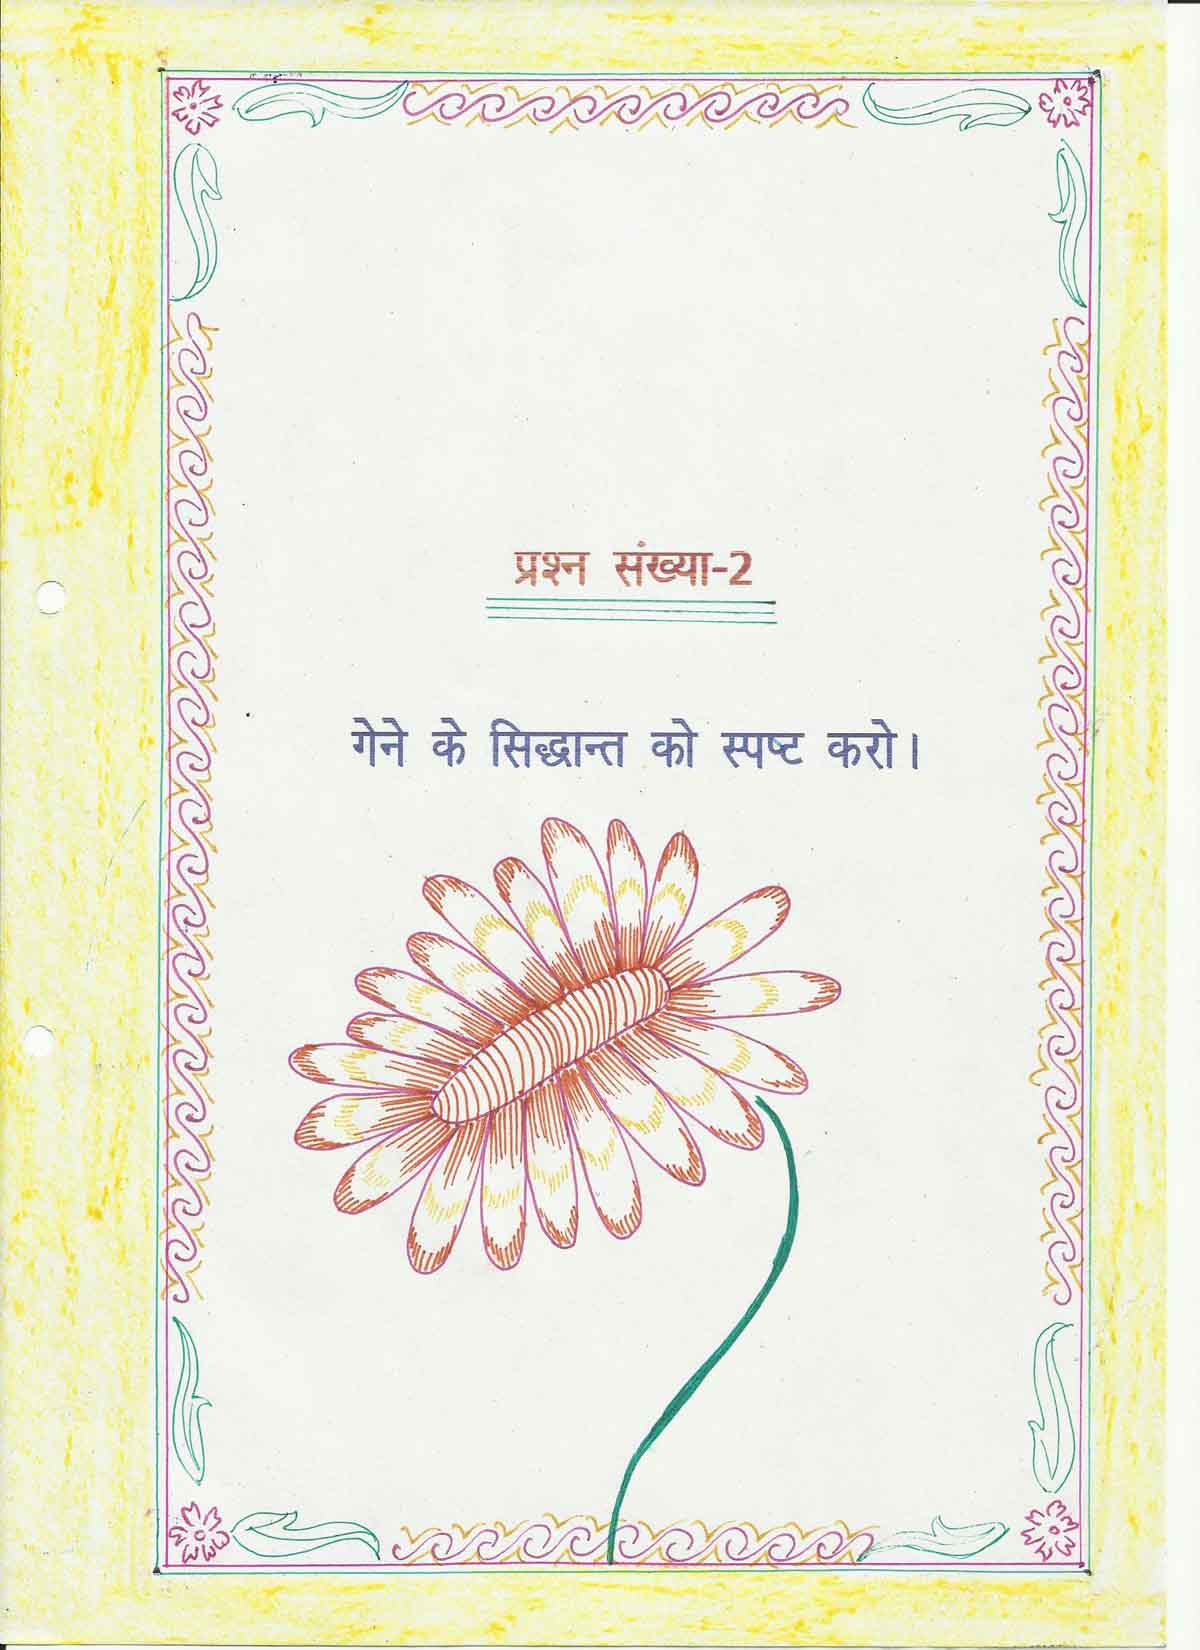 प्रश्न संख्या-2
गेने के सिद्धान्त को स्पष्ट करो।